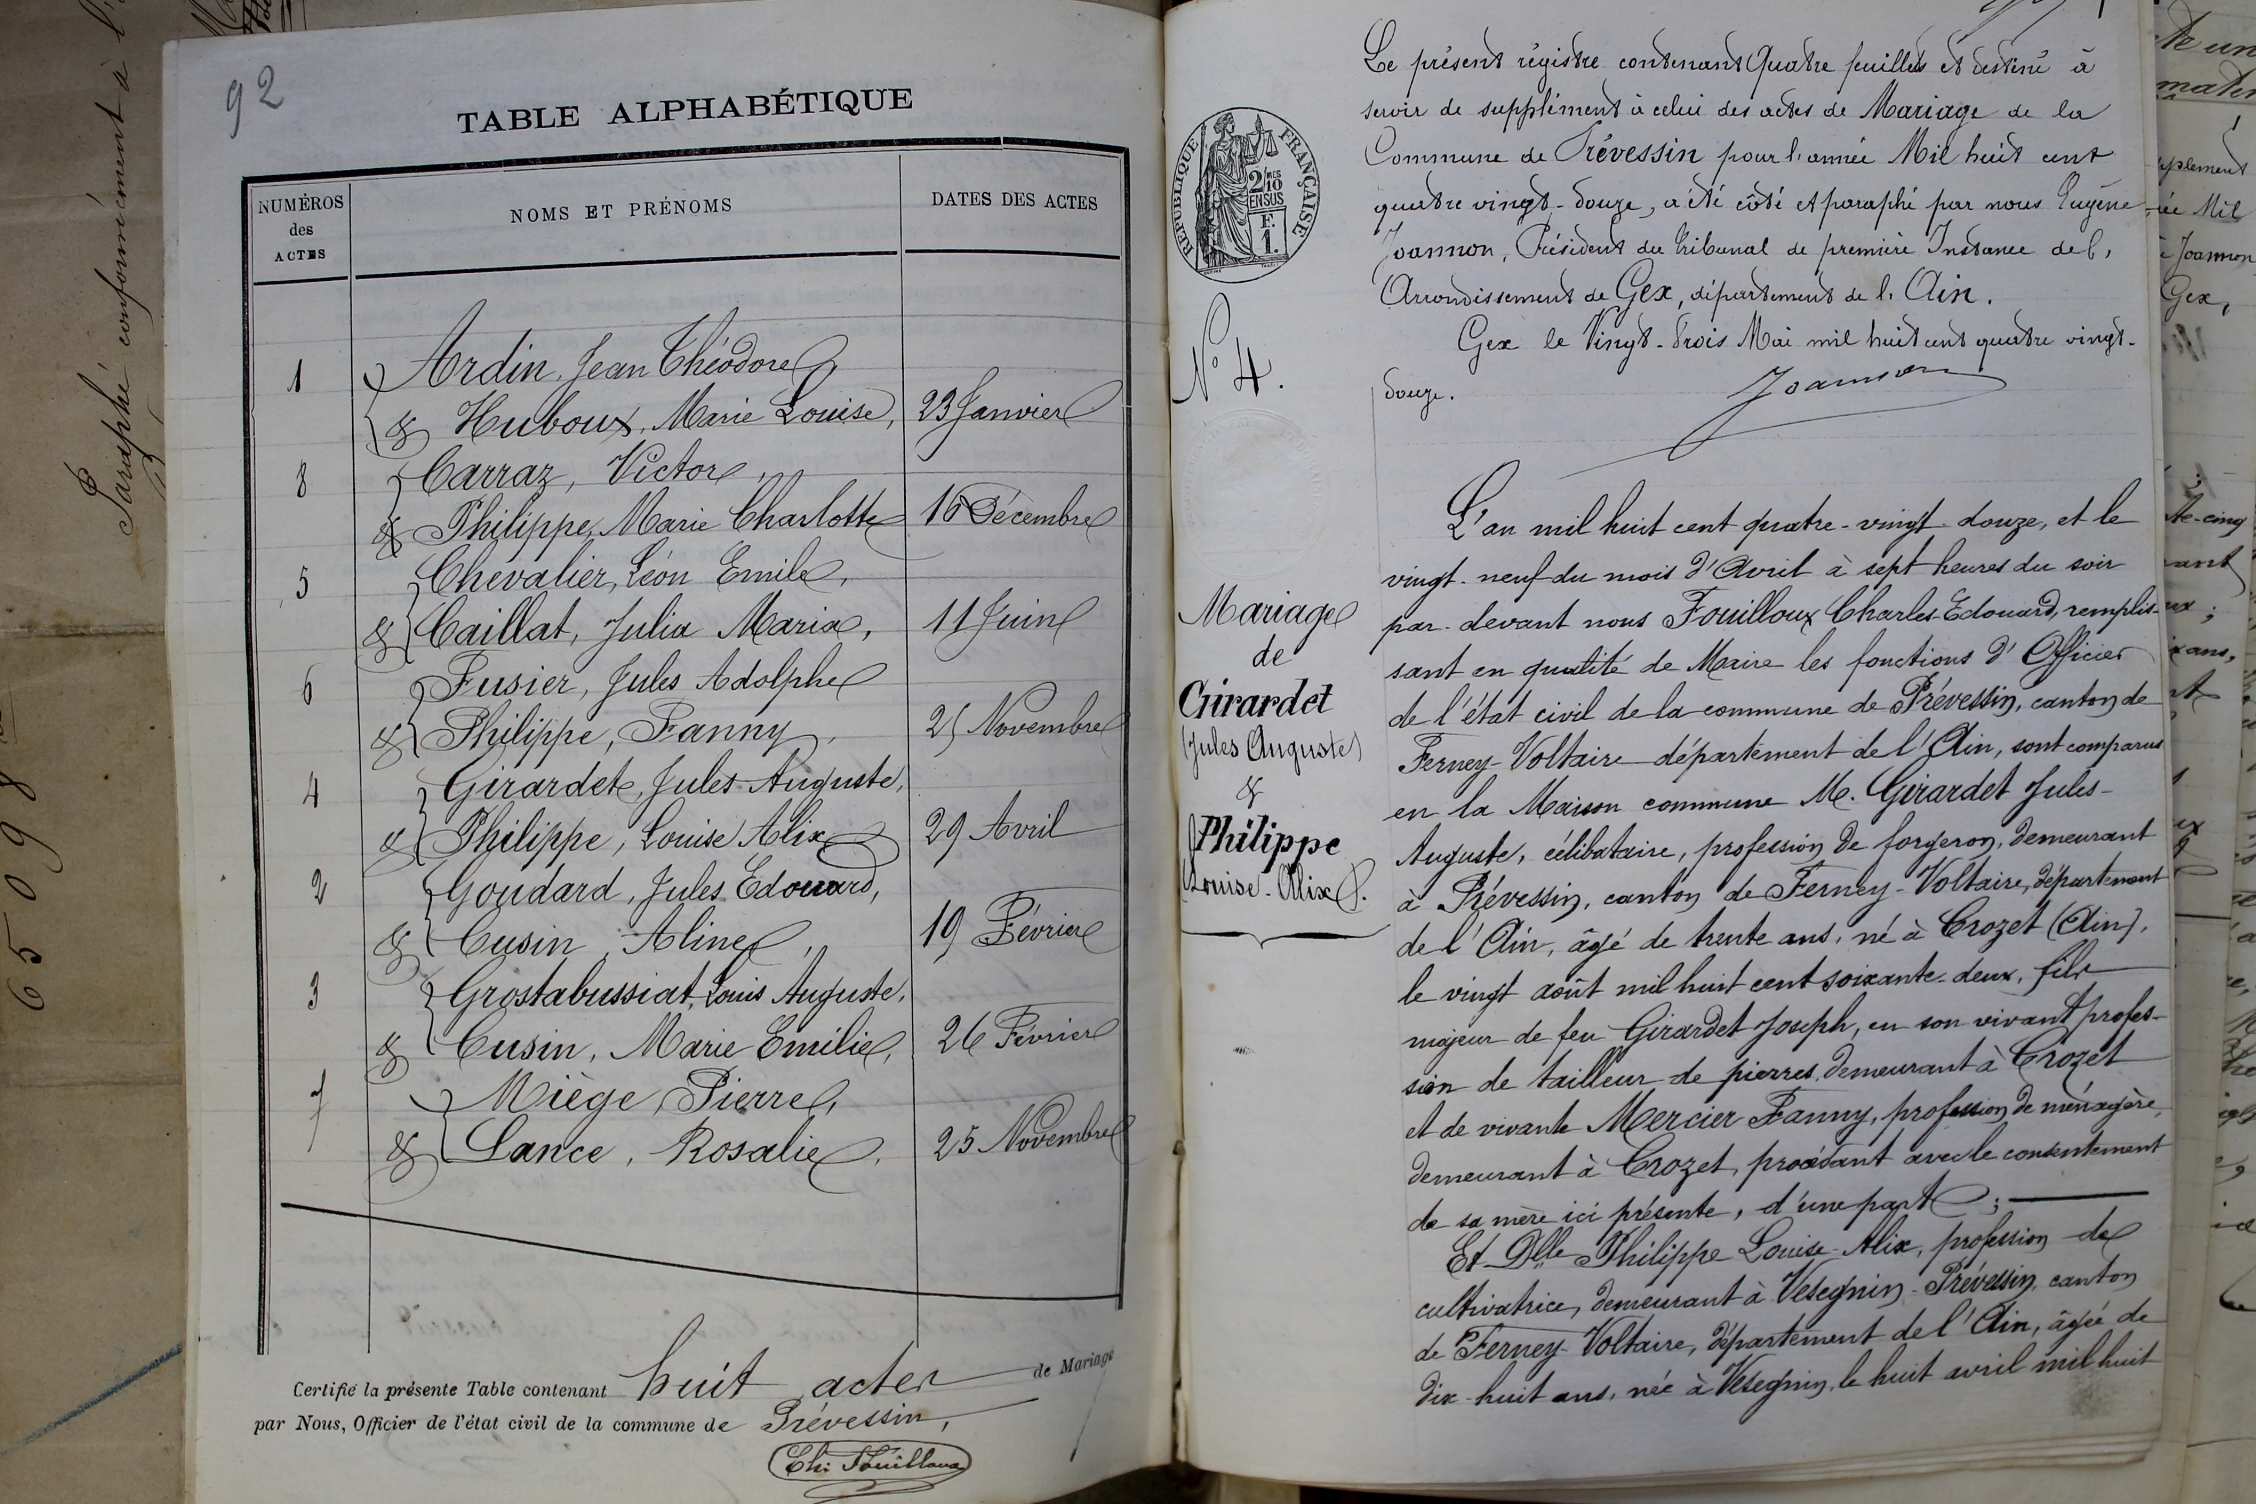 92
TABLE ALPHABÉTIQUE
NUMÉROS
des
ACTES
NOMS ET PRÉNOMS
DATES DES ACTES
1 Ardin, Jean Théodore
& Huboux, Marie Louise, 23 Janvier
8 Carraz, Victor,
& Philippe, Marie Charlotte 16 Décembre
5 Chevalier, Léon Emile,
& Caillat, Julia Maria, 11 Juin
6 Fusier, Jules Adolphe
& Philippe, Fanny, 25 Novembre
4 Girardet, Jules Auguste,
& Philippe, Louise Alix 29 Avril
2 Goudard, Jules Edouard,
& Cusin, Aline, 19 Février
3 Grostabussiat, Louis Auguste,
& Cusin, Marie Emilie, 26 Février
7 Miège, Pierre,
& Lance, Rosalie, 25 Novembre
Certifié la présente Table contenant huit actes de Mariage
par Nous, Officier de l'état civil de la commune de Prévessin,
Ch: Fouilloux
Paraphé conformément à l'
65098
Le présent régistre contenant Quatre feuilles et destiné à
servir de supplément à celui des actes de Mariage de la
Commune de Prévessin pour l'année Mil huit cent
quatre vingt-douze, a été côté et paraphé par nous Eugène
Joannon, Président du Tribunal de première Instance de l'
Arrondissement de Gex, département de l'Ain.
Gex le Vingt-trois Mai mil huit cent quatre vingt-
douze.
Joannon
RÉPUBLIQUE FRANÇAISE
2/10
EN SUS
F.
1.
N° 4.
Mariage
de
Girardet
(Jules Auguste)
&
Philippe
Louise-Alix.
L'an mil huit cent quatre-vingt-douze, et le
vingt-neuf du mois d'Avril à sept heures du soir
par-devant nous Fouilloux Charles-Edouard, remplis-
sant en qualité de Maire les fonctions d'Officier
de l'état civil de la commune de Prévessin, canton de
Ferney-Voltaire département de l'Ain, sont comparus
en la Maison commune M. Girardet Jules-
Auguste, célibataire, profession de forgeron, demeurant
à Prévessin, canton de Ferney-Voltaire, département
de l'Ain, âgé de trente ans, né à Crozet (Ain),
le vingt août mil huit cent soixante-deux, fils
majeur de feu Girardet Joseph, en son vivant profes-
sion de tailleur de pierres, demeurant à Crozet
et de vivante Mercier Fanny, profession de ménagère,
demeurant à Crozet, procédant avec le consentement
de sa mère ici présente, d'une part;
Et Dlle Philippe Louise-Alix, profession de
cultivatrice, demeurant à Vésegnin-Prévessin, canton
de Ferney-Voltaire, département de l'Ain, âgée de
dix-huit ans, née à Vésegnin, le huit avril mil huit
Joannon
Gex,